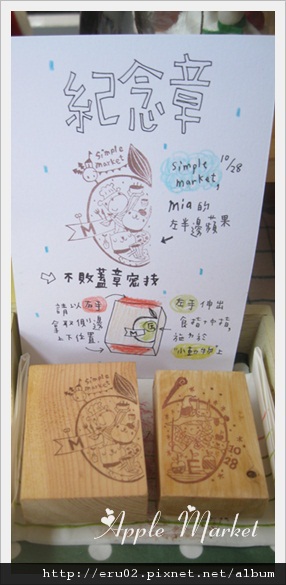 紀念章
simple market
simple market,
10/28
mia 的
左半邊蘋果
M
不敗蓋章密技
請以右手
拿取側邊
上下位置
左手伸出
食指+中指,
施力於
"小動物"上
simple market
M
E
10
28
Apple Market
http://eru02.pixnet.net/album